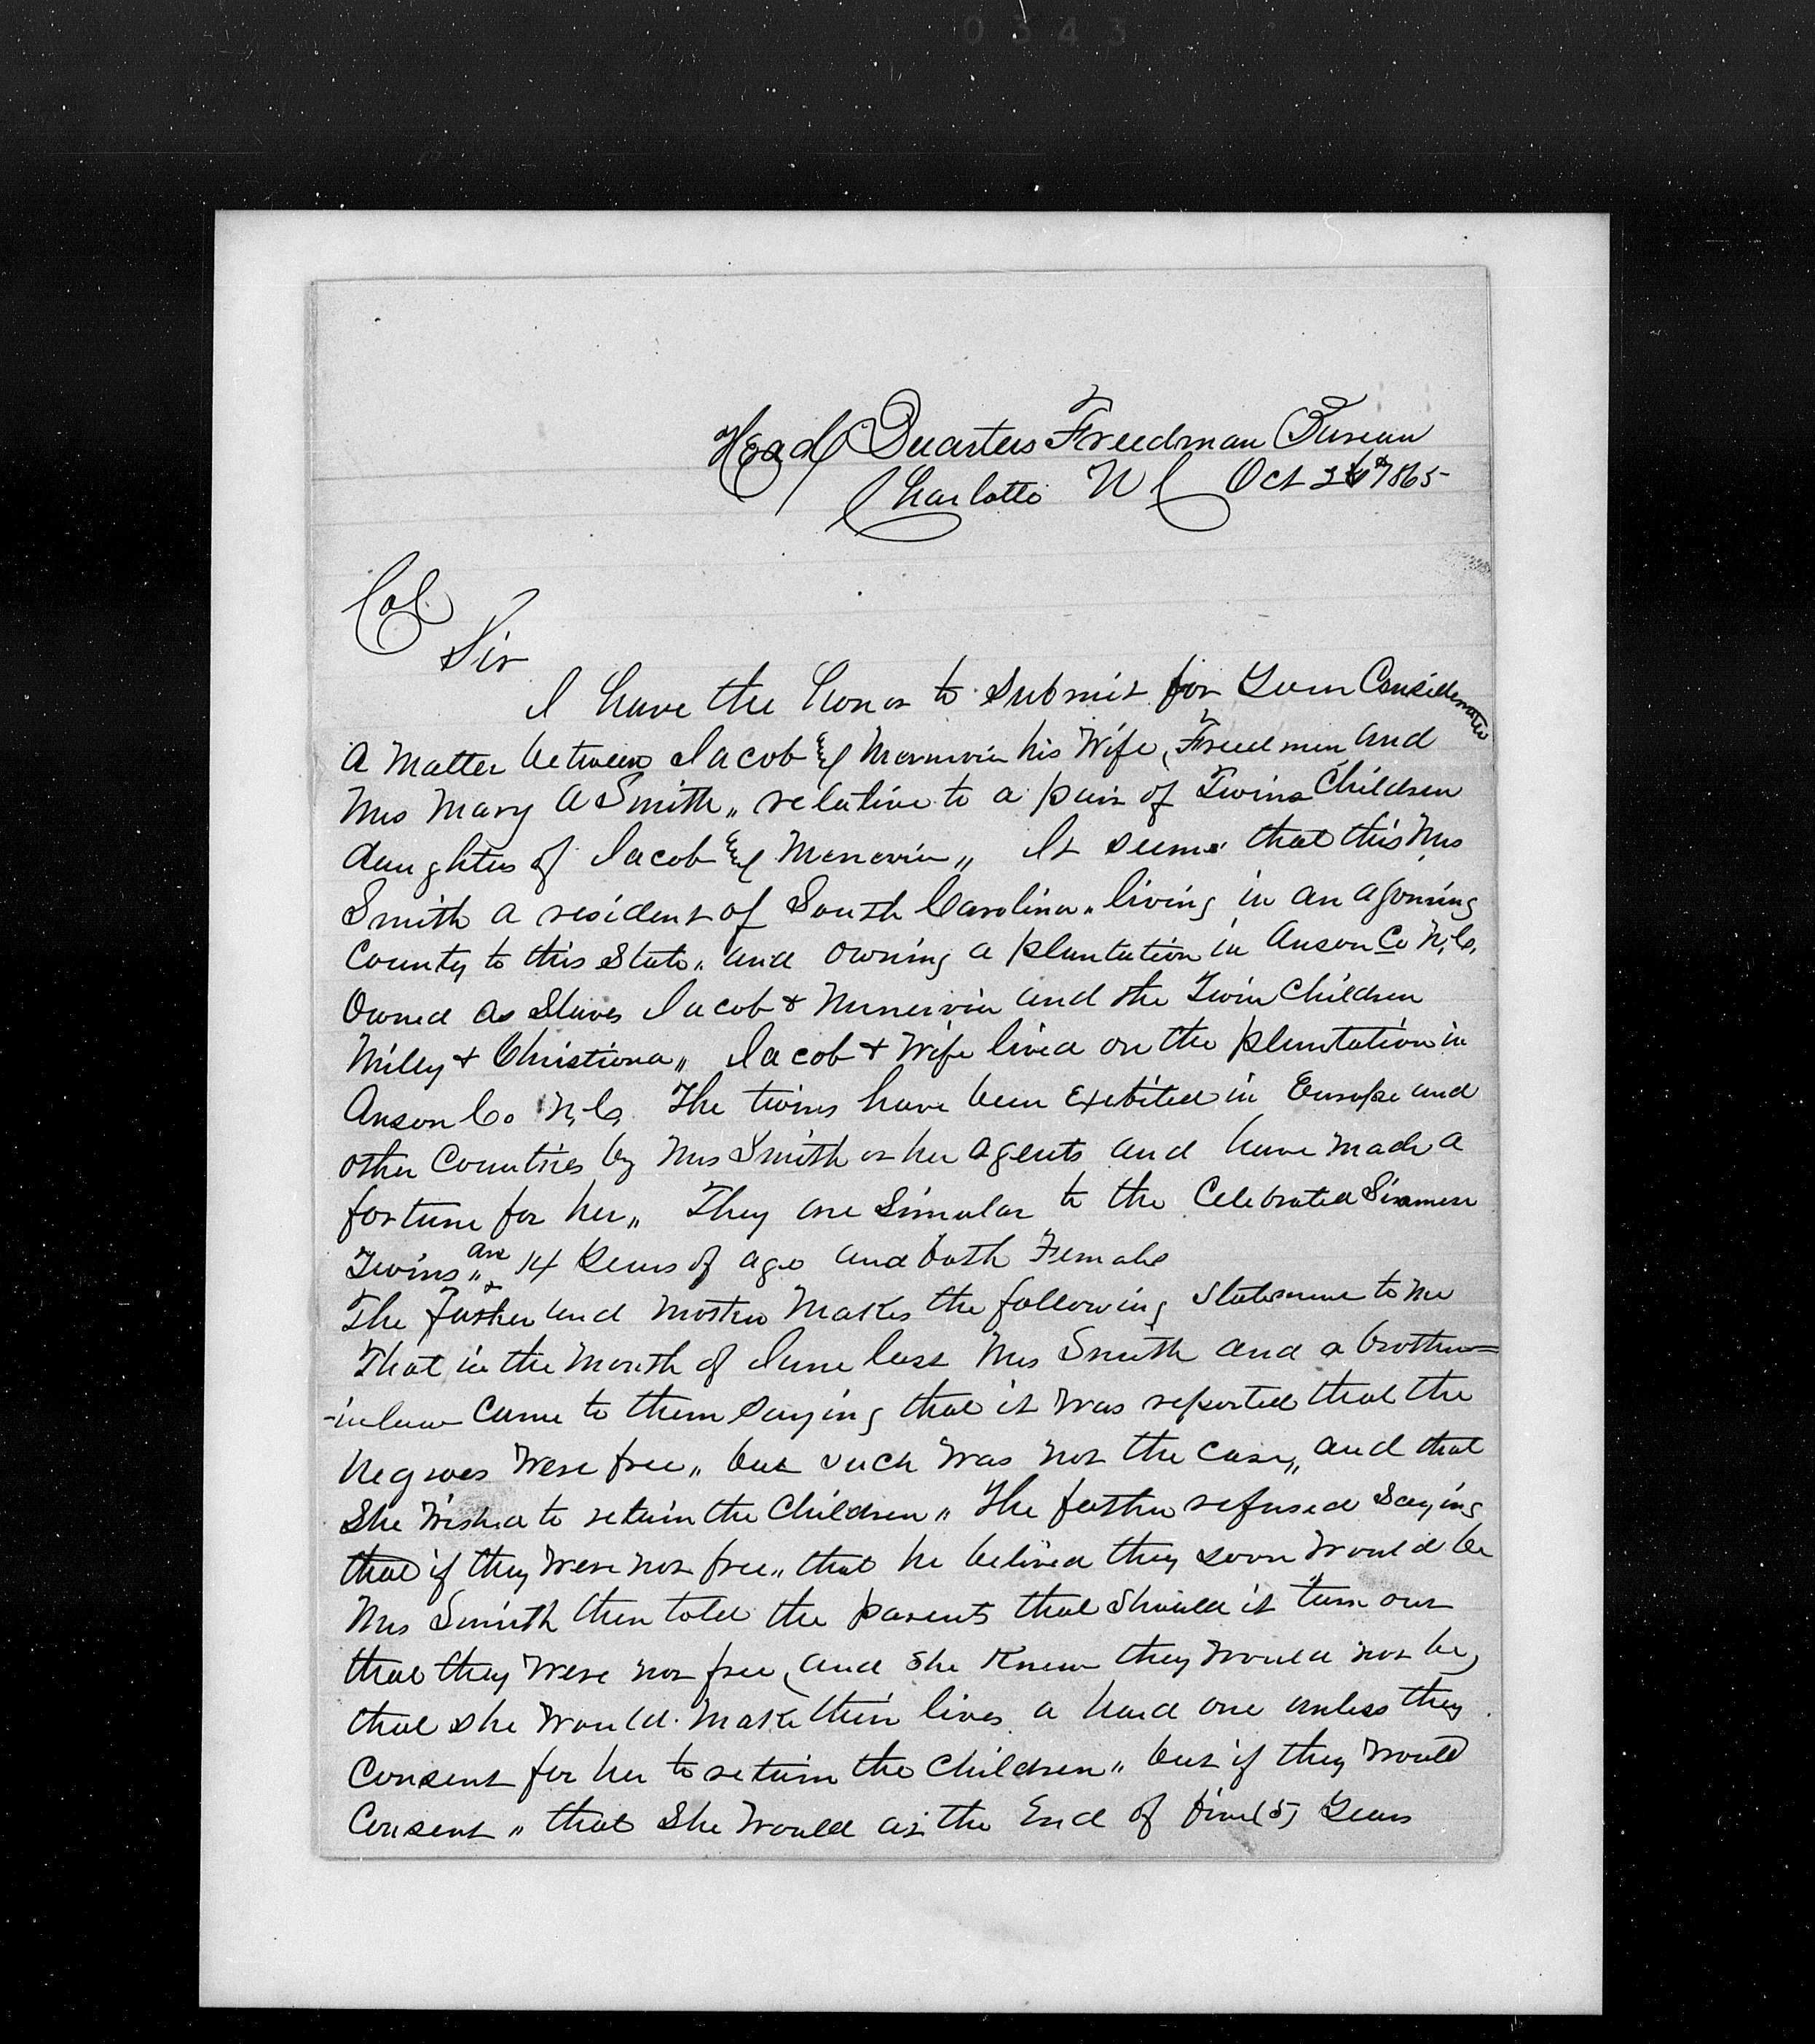 0343
Head Quarters Freedman Bureau
Charlotte N C Oct 26 1865
Col
Sir
I have the honor to submit for Your Consideration
A Matter between Jacob & Menervia his Wife, Freedmen and
Mrs Mary A Smith,, relative to a pair of Twins Children
daughters of Jacob & Menervia,, It seems that this Mrs
Smith a resident of South Carolina,, living in an ajoining
County to this State,, and owning a plantation in Anson Co N,C,
Owned as Slaves Jacob & Minervia and the Twin Children
Milley & Christiena,, Jacob & Wife lived on the plantation in
Anson Co N,C, The twins have been Exebited in Europe and
other Countries by Mrs Smith or her agents and have made a
fortune for her,, They are Simular to the Celebrated Siamese
Twins,, are 14 Years of age and both Female
The father and mother Makes the following Statement to me
That in the Month of June last Mrs Smith and a brother=
-inlaw Came to them Saying that it was reported that the
Negroes Were free,, but such was not the case,, and that
She Wished to retain the Children,, The father refused Saying
that if they Were not free,, that he belived they soon Would be
Mrs Smith then told the parents that Should it turn out
that they Were not free, and She Knew they Would not be,
that she Would Make their lives a hard one unless they
Consent for her to retain the Children,, but if they Would
Consent,, that She Would at the End of five (5) Years